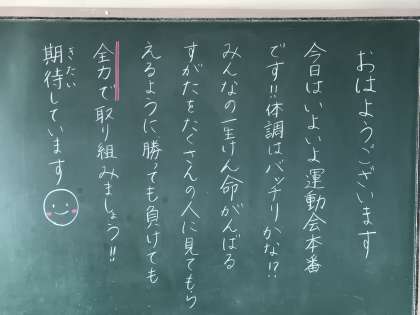 おはようございます
今日はいよいよ運動会本番
です!!体調はバッチリかな!?
みんなの一生けん命がんばる
すがたをたくさんの人に見てもら
えるように、勝っても負けても
全力で取り組みましょう!!
期待しています
きたい